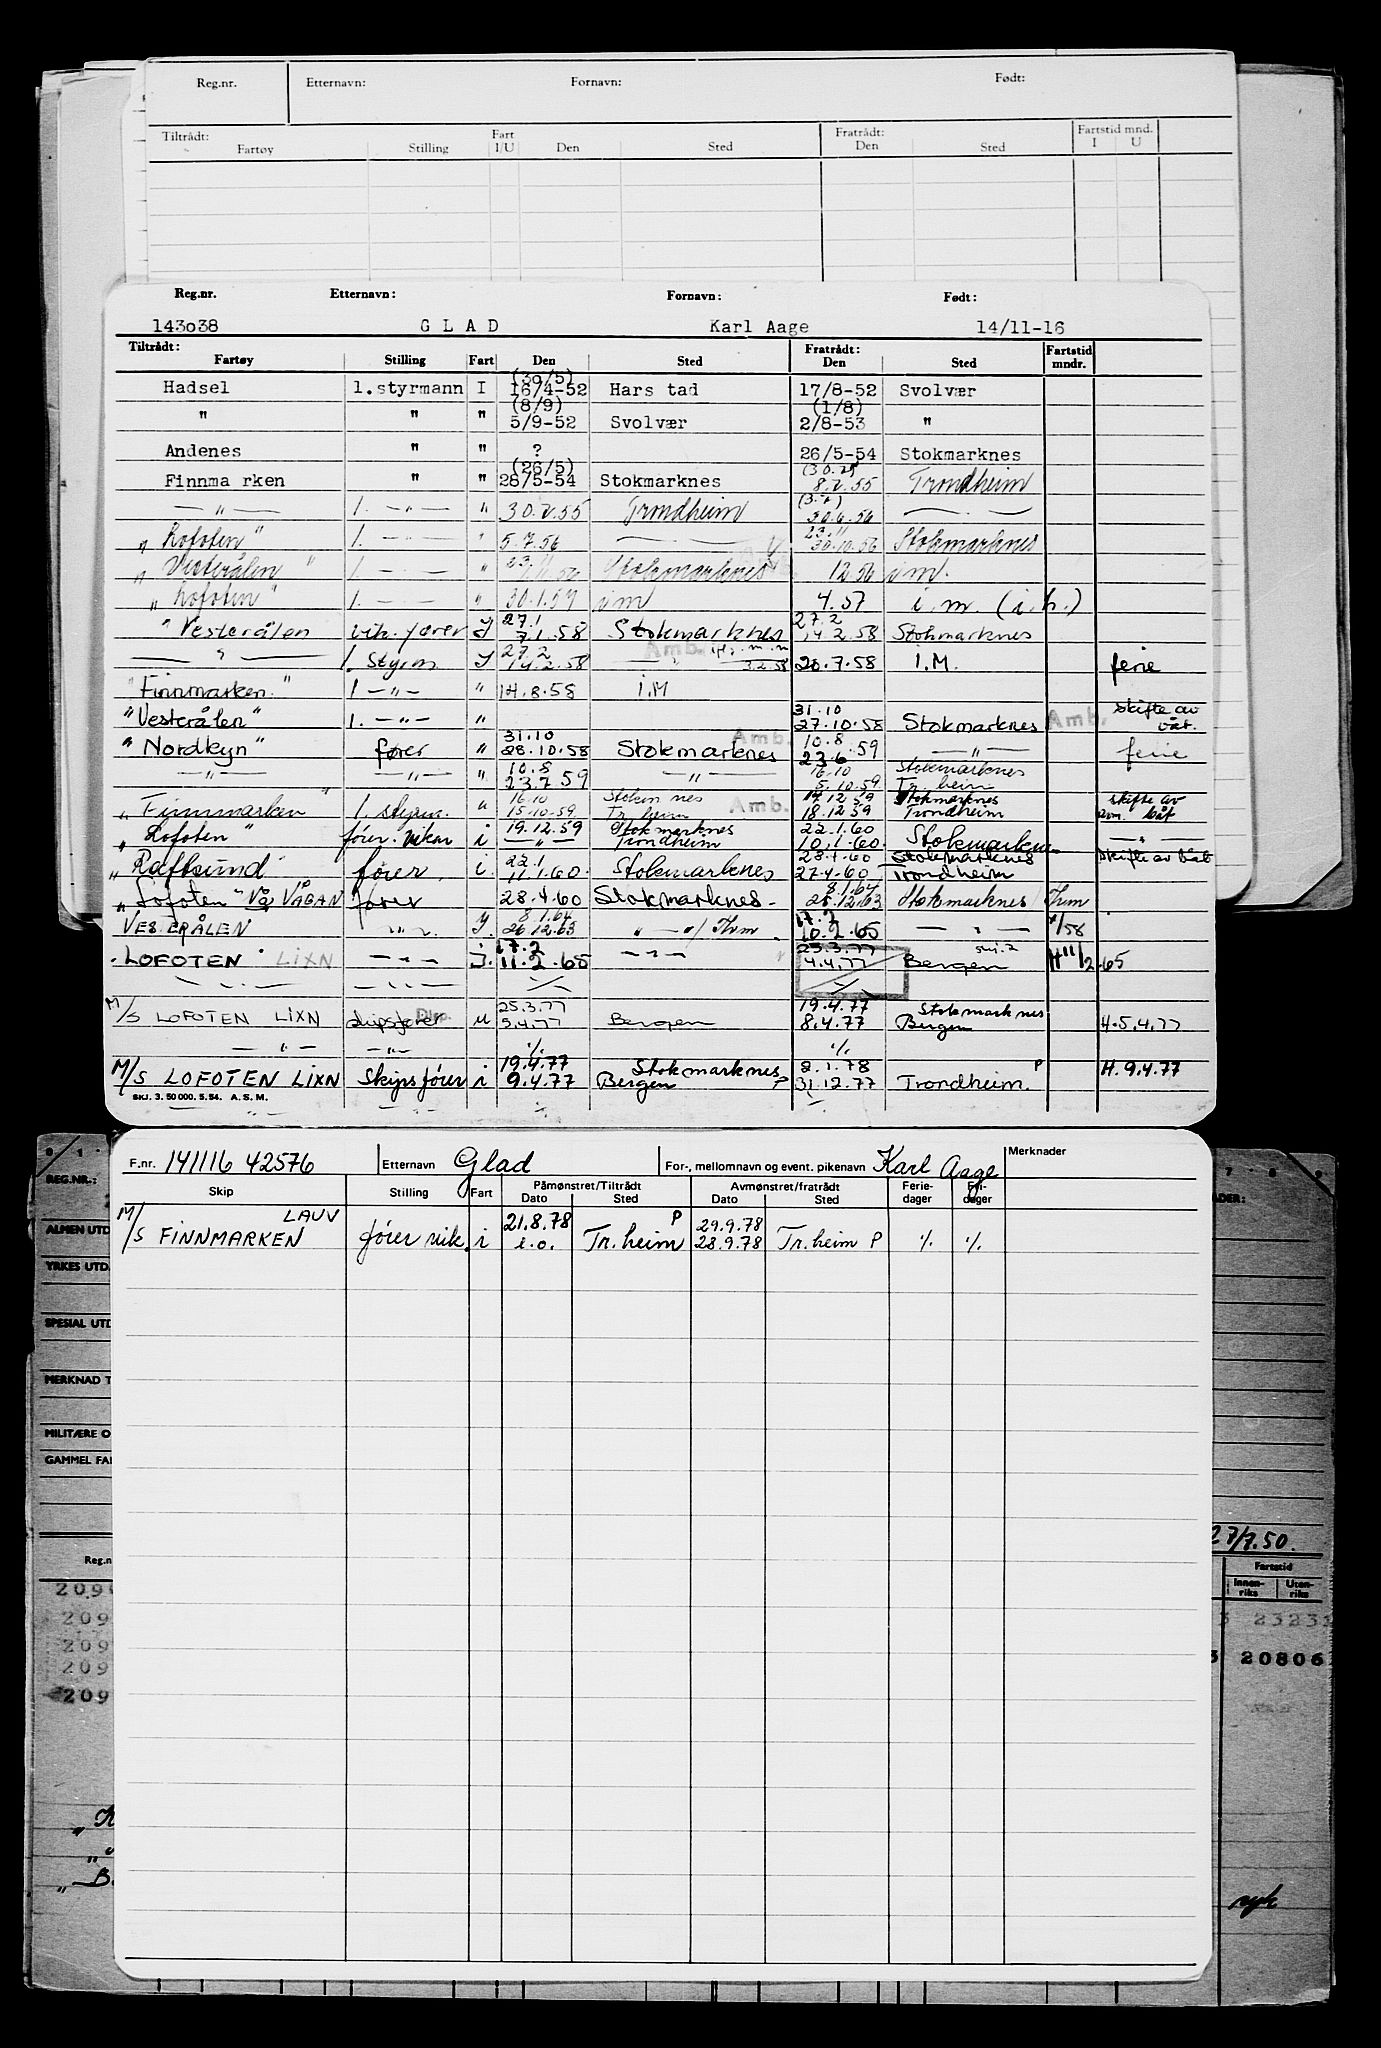 Reg.nr. Etternavn: Fornavn: Født:
Tiltrådt: Fart Fratrådt: Fartstid mnd.
Fartøy Stilling I/U Den Sted Den Sted I U
Reg.nr. Etternavn: Fornavn: Født:
143o38 G L A D Karl Aage 14/11-16
Tiltrådt: Fratrådt: Fartstid
Fartøy Stilling Fart Den Sted Den Sted mndr.
(30/5)
Hadsel 1.styrmann I 16/4-52 Hars tad 17/8-52 Svolvær
(8/9) (1/8)
" " " 5/9-52 Svolvær 2/8-53 "
Andenes " " ? 26/5-54 Stokmarknes
(26/5)
Finnma rken " " 28/5-54 Stokmarknes 8.2.55 Trondheim
— " — 1. — " — " 30.2.55 Trondheim 30.6.56
" Lofoten " 1. — " — " 5.7.56 30.10.56 Stokmarknes
" Vesterålen " 1. — " — " Stokmarknes 12 56 i m.
" Lofoten " 1. — " — " 30.1.57 i m 4.57 i. m. (i.h.)
27.1 27.2
" Vesterålen vik. fører I 7.1.58 Stokmarknes 14.2.58 Stokmarknes
27.2 Amb.
— " — 1. Styrm I 14.2.58 3.2.58 20.7.58 i.M. ferie
" Finnmarken " 1 — " — " 14.8.58 i.M
31.10 skifte av
" Vesterålen " 1. — " — " 27.10.58 Stokmarknes Amb. båt.
31.10 Amb. 10.8
" Nordkyn " fører " 28.10.58 Stokmarknes 23.6.59 — " — ferie
10.8 16.10 Stokmarknes
— " — — " — " 23.7.59 — " — 5.10.59 Tr.heim
16.10 Stokm nes Amb. Stokmarknes skifte av
" Finnmarken " 1. styrm. " 15.10.59 Tr.heim 18.12.59 Trondheim båt
19.12.59 Stokmarknes 22.1.60
" Lofoten " fører. vikar i — " — Trondheim 10.1.60 Stokmarknes — " —
22.1 28.4.60 Stokmarknes Skifte av båt
" Raftsund fører i. 11.1.60. Stokmarknes 27.4.60 Trondheim
8.1.64
" Lofoten " Vå VÅGAN fører 28.4.60 Stokmarknes — 26.12.63 Stokmarknes
8.1.64 17.2
VESTERÅLEN — " — I. 26.12.63 " — " 10.2.65 — " —
17.2 25.3.77
" LOFOTEN " LIXN — " — I. 11.2.65 — " — 4.4.77 Bergen H 11/2.65
25.3.77 19.4.77 Stokmarknes
M/S LOFOTEN LIXN skipsfører Disp. U 5.4.77 Bergen 8.4.77 Bergen H.5.4.77
— " — — " — ./. ./.
19.4.77 Stokmarknes 8.1.78 P
M/S LOFOTEN LIXN Skipsfører i 9.4.77 Bergen P 31.12.77 Trondheim. H.9.4.77
SKJ. 3. 50 000. 5. 54. A. S. M.
F.nr. 141116 42576 Etternavn Glad For-, mellomnavn og event. pikenavn Karl Aage Merknader
Skip Stilling Fart Påmønstret/Tiltrådt Avmønstret/fratrådt Ferie- Fri-
Dato Sted Dato Sted dager dager
LAUV 21.8.78 P 29.9.78
M/S FINNMARKEN fører vik. i e.o. Tr.heim 28.9.78 Tr.heim P ./. ./.
0 1 7 8 9
REG.NR.:
ALMEN UTD
YRKES UTD.
SPESIAL UTD
MERKNAD T
MILITÆRE O
GAMMEL FA
27/7.50.
Reg.n Fartstid
Innen-riks Uten-riks
209
209 23232
209
209 20806
209
nyk